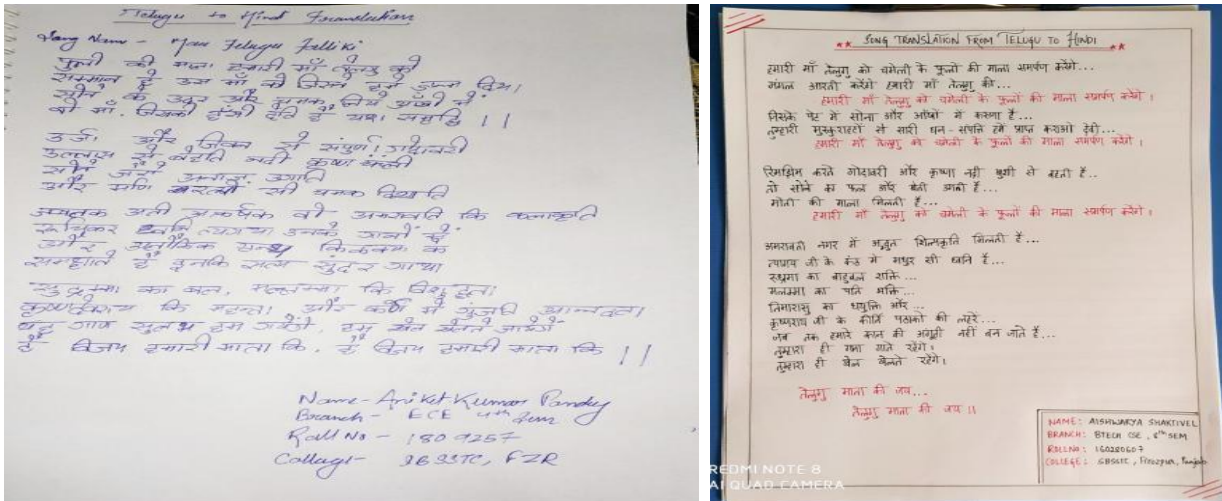 Telugu to Hindi Translation
Song Name - Maa Telugu Talli ki
फूलों की माला हमारी माँ तेलुगु को
सम्मान है उस माँ को जिसने हमें जन्म दिया।
सोने के उदर और लिये आंखों में
वो माँ जिसकी हँसी देते है ||
और जिवन से संपूर्ण गोदावरी
उल्लास से बेहति नदी कृष्ण
सोने जैसे
और की चमक
अती वो अमरावति कि कलाकृति
ध्वनि त्यागय्या उनके गानों में
और
है इनकि सत्य सुंदर गाथा
का बल, मल्लम्मा कि
कि और
यह गान हम गायेंगे, हम खेल खेलते जायेंगे
है विजय हमारी माता कि, है विजय हमारी माता कि ||
Name - Aniket Kumar Pandey
Branch - ECE 4th Sem
Roll No - 1809257
Collage - SBSSTC, FZR
SONG TRANSLATION FROM TELUGU TO HINDI
हमारी माँ तेलुगु को चमेली के फूलों की माला समर्पण करेंगे...
मंगल आरती करेंगे हमारी माँ तेलुगु की...
हमारी माँ तेलुगु को चमेली के फूलों की माला समर्पण करेंगे।
जिसके पेट में सोना और आँखों में करुणा है...
तुम्हारी मुस्कुराहटों से सारी धन-संपति हमें प्राप्त कराओ देवी...
हमारी माँ तेलुगु को चमेली के फूलों की माला समर्पण करेंगे।
रिमझिम करते गोदावरी और कृष्णा नदी खुशी से बहती है...
तो सोने का फल और खेती आती है...
मोती की माला मिलती है...
हमारी माँ तेलुगु को चमेली के फूलों की माला समर्पण करेंगे।
अमरावती नगर में अद्भुत शिल्पकृति मिलती है...
त्यागय जी के कंठ में मधुर सी ध्वनि है...
रुद्रमा का बाहुबल शक्ति...
मलम्मा का पति भक्ति...
तिमारासु का और...
कृष्णराय जी के कीर्ति की लहरें...
जब तक हमारे कान की अंगूठी नहीं बन जाते है...
तुम्हारा ही गाना गाते रहेंगे।
तुम्हारा ही खेल खेलते रहेंगे।
तेलुगु माता की जय...
तेलुगु माता की जय !!
NAME: AISHWARYA SHAKTIVEL
BRANCH: BTECH CSE, 8th SEM
ROLLNO: 160280607
COLLEGE: SBSSTC, Ferozpur, Punjab
REDMI NOTE 8
AI QUAD CAMERA